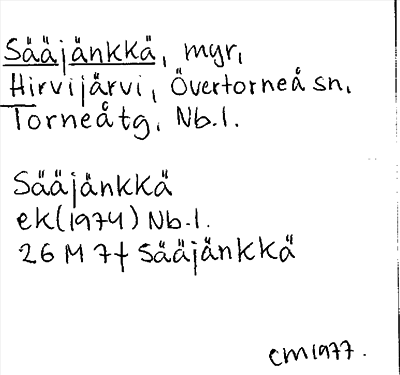 Sääjänkkä, myr,
Hirvijärvi, Övertorneå sn,
Torneå tg, Nb.l.
Sääjänkkä
ek(1974) Nb.l.
26 M 7f Sääjänkkä
CM1977.